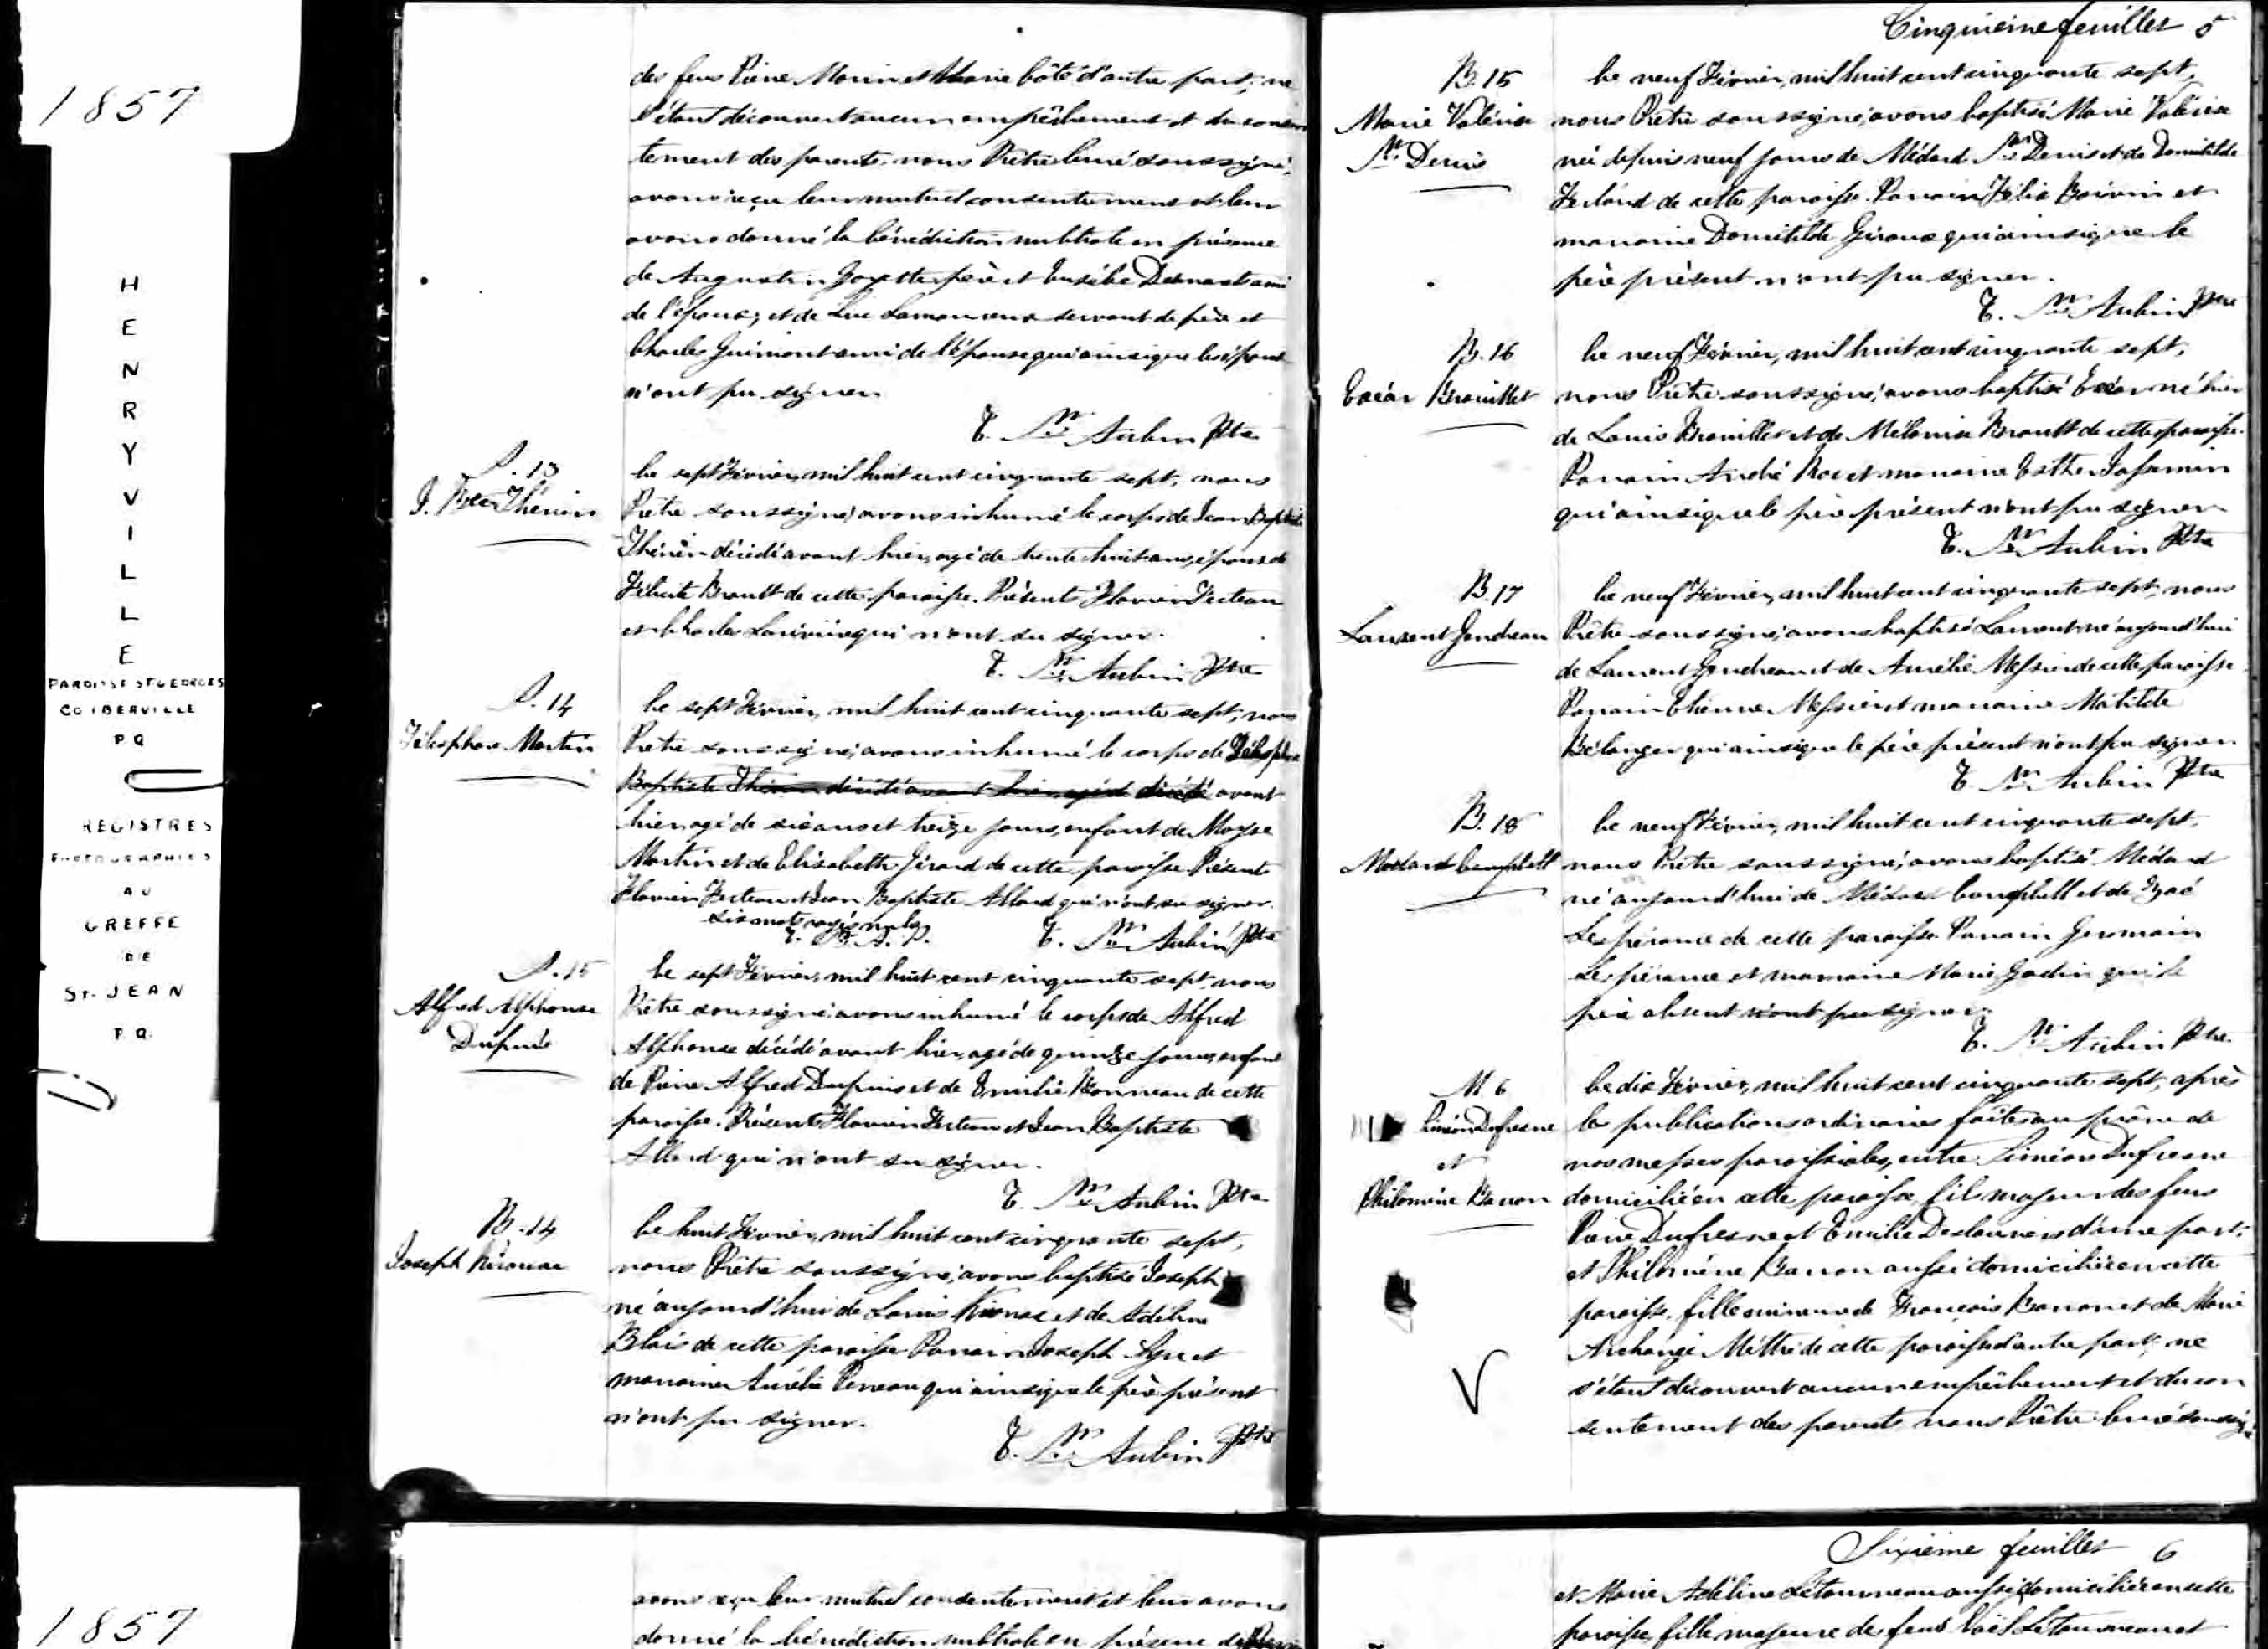 1857
HENRYVILLE
PAROISSE ST GEORGES
CO IBERVILLE
P Q
REGISTRES
PHOTOGRAPHIES
AU
GREFFE
DE
St. JEAN
P.Q.
des feus Pierre Morin et Marie Côté d'autre part; ne
s'étant découvert aucun empêchement et du consen
tement des parents, nous Prêtre Curé soussigné,
avons reçu leur mutuel consentement et leur
avons donné la bénédiction nuptiale en présence
de Augustin Goyette père et Eusèbe ami
de l'époux, et de Luc Lamoureux servant de père et
Charles Guimont ami de l'épouse qui ainsi que les époux
n'ont pu signer
T. St. Aubin Ptre
S. 13
J. Bte Thénien
Le sept Février, mil huit cent cinquante sept, nous
Prêtre soussigné, avons inhumé le corps de Jean Baptiste
décédé avant hier, agé de trente huit ans, époux de
Félicité Brault de cette paroisse. Présents Flavien Fecteau
et Charles qui n'ont su signer.
T. St. Aubin Ptre
S. 14
Télesphore Martin
Le sept Février, mil huit cent cinquante sept, nous
Prêtre soussigné, avons inhumé le corps de Télesphore
Baptiste décédé avant hier agé de décédé avant
hier agé de six ans et treize jours, enfant de Moyse
Martin et de Elisabeth Gérard de cette paroisse. Présents
Flavien Fecteau et Jean Baptiste Allard qui n'ont su signer.
six mots rayés nuls
T. St. A. P.
T. St. Aubin Ptre
S. 15
Alfred Alphonse
Dupuis
Le sept Février, mil huit cent cinquante sept, nous
Prêtre soussigné, avons inhumé le corps de Alfred
Alphonse décédé avant hier, agé de quinze jours, enfant
de Pierre Alfred Dupuis et de Emilie Bonneau de cette
paroisse. Présents Flavien Fecteau et Jean Baptiste
Allard qui n'ont su signer.
T. St. Aubin Ptre
B. 14
Joseph Kirouac
Le huit Février, mil huit cent cinquante sept,
nous Prêtre soussigné, avons baptisé Joseph
né aujourd'hui de Louis Kirouac et de Adéline
Blais de cette paroisse Parrain Joseph et
marraine Aurélie qui ainsi que le père présent
n'ont pu signer.
T. St. Aubin Ptre
Cinquième feuillet 5
B. 15
Marie Valérise
St. Denis
Le neuf Février, mil huit cent cinquante sept,
nous Prêtre soussigné, avons baptisé Marie Valérise
née depuis neuf jours de Médard St. Denis et de Domitilde
Ferland de cette paroisse. Parrain Félix Boivin et
marraine Domitilde Giroux qui ainsi que le
père présent n'ont pu signer.
T. St. Aubin Ptre
B. 16
Brouillet
Le neuf Février, mil huit cent cinquante sept,
nous Prêtre soussigné, avons baptisé né hier
de Louis Brouillet et de Mélanise Brault de cette paroisse.
Parrain André Roi et marraine Esther Jasmin
qui ainsi que le père présent n'ont pu signer
T. St. Aubin Ptre
B. 17
Laurent Gendreau
Le neuf Février, mil huit cent cinquante sept, nous
Prêtre soussigné, avons baptisé Laurent né aujourd'hui
de Laurent Gendreau et de Aurélie Messier de cette paroisse.
Parrain Etienne Messier et marraine Matilde
Bélanger qui ainsi que le père présent n'ont pu signer
T. St. Aubin Ptre
B. 18
Médard Campbell
Le neuf Février, mil huit cent cinquante sept,
nous Prêtre soussigné, avons baptisé Médard
né aujourd'hui de Médard Campbell et de Zoé
Lespérance de cette paroisse Parrain Germain
Lespérance et marraine Marie Godin qui le
père absent n'ont pu signer
T. St. Aubin Ptre.
M. 6
Siméon Dufresne
et
Philomène Baron
Le dix Février, mil huit cent cinquante sept, après
les publications ordinaires faites au prône de
nos messes paroissiales, entre Siméon Dufresne
domicilié en cette paroisse, fils majeur des feus
Pierre Dufresne et Emilie Deslauriers d'une part;
et Philomène Baron aussi domiciliée en cette
paroisse, fille mineure de François Baron et de Marie
Archange Méthé de cette paroisse d'autre part, ne
s'étant découvert aucun empêchement et du con
sentement des parents nous Prêtre Curé soussigné
1857
avons reçu leur mutuel consentement et leur avons
donné la bénédiction nuptiale en présence de
Sixième feuillet 6
et Marie Adéline Létourneau aussi domiciliée en cette
paroisse, fille majeure de feus Létourneau et